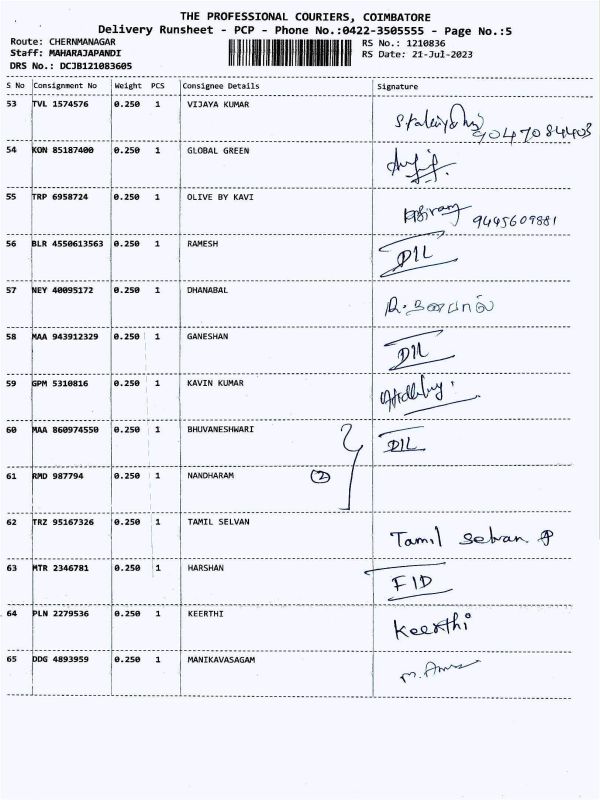 THE PROFESSIONAL COURIERS, COIMBATORE
Delivery Runsheet - PCP - Phone No.:0422-3505555 - Page No.:5
Route: CHERNMANAGAR RS No.: 1210836
Staff: MAHARAJAPANDI RS Date: 21-Jul-2023
DRS No.: DCJB121083605
S No Consignment No Weight PCS Consignee Details Signature
53 TVL 1574576 0.250 1 VIJAYA KUMAR
9047084403
54 KON 85187400 0.250 1 GLOBAL GREEN
55 TRP 6958724 0.250 1 OLIVE BY KAVI
9445609881
56 BLR 4550613563 0.250 1 RAMESH DIL
57 NEY 40095172 0.250 1 DHANABAL
58 MAA 943912329 0.250 1 GANESHAN DIL
59 GPM 5310816 0.250 1 KAVIN KUMAR
60 MAA 860974550 0.250 1 BHUVANESHWARI DIL
61 RMD 987794 0.250 1 NANDHARAM 2
62 TRZ 95167326 0.250 1 TAMIL SELVAN Tamil Selvan
63 MTR 2346781 0.250 1 HARSHAN FID
64 PLN 2279536 0.250 1 KEERTHI Keerthi
65 DDG 4893959 0.250 1 MANIKAVASAGAM